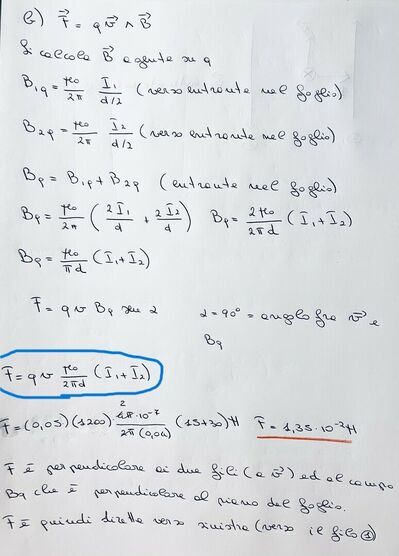 b) F⃗ = q v⃗ ∧ B⃗
Si calcola B⃗ agente su q
B1q = μ0/2π I1/(d/2) (verso entrante nel foglio)
B2q = μ0/2π I2/(d/2) (verso entrante nel foglio)
Bq = B1q + B2q (entrante nel foglio)
Bq = μ0/2π (2I1/d + 2I2/d) Bq = 2μ0/2πd (I1 + I2)
Bq = μ0/πd (I1 + I2)
F = q v Bq sen α α = 90° = angolo fra v⃗ e
Bq
F = q v μ0/2πd (I1 + I2)
F = (0,05)(1200) · 2 4π·10⁻⁷/2π(0,04) (15+30) N F = 1,35 · 10⁻² N
F è perpendicolare ai due fili (e v⃗) ed al campo
Bq che è perpendicolare al piano del foglio.
F è quindi diretta verso sinistra (verso il filo 1)